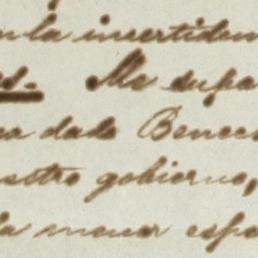 en la incertidum
Me dupa
ha dado Benec
nuestro gobierno,
la menor espe